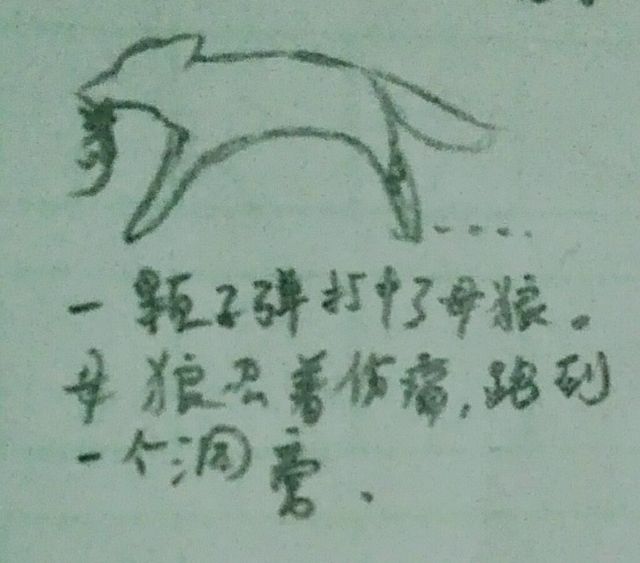 一颗子弹打中了母狼。
母狼忍着伤痛,跑到
一个洞旁.